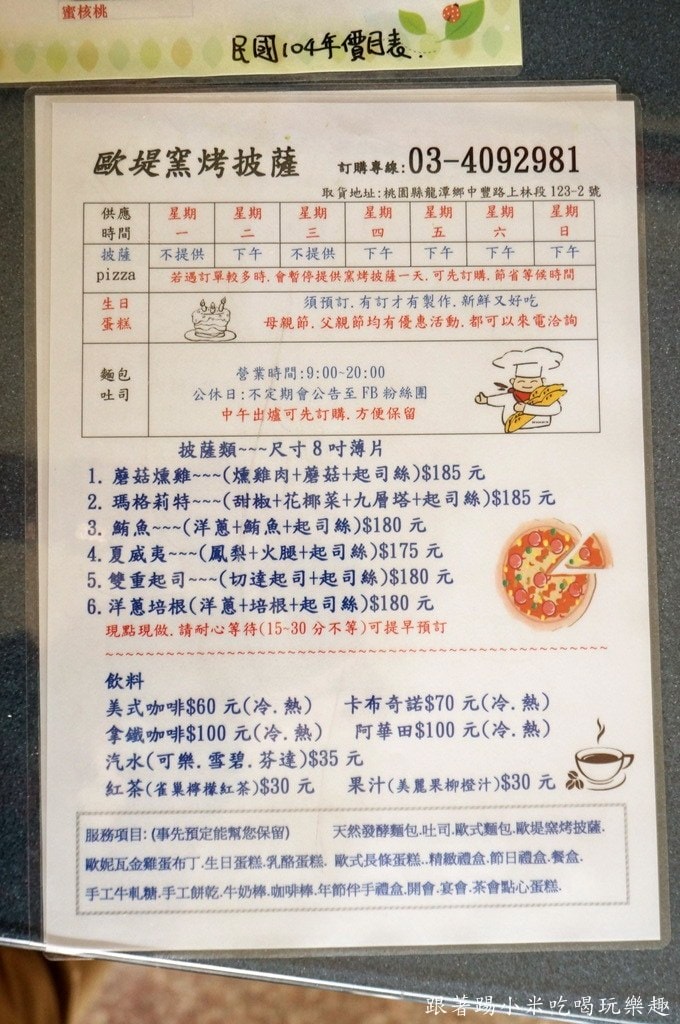 蜜核桃
民國104年價目表.
歐堤窯烤披薩 訂購專線:03-4092981
取貨地址:桃園縣龍潭鄉中豐路上林段123-2號
供應時間 星期一 星期二 星期三 星期四 星期五 星期六 星期日
披薩pizza 不提供 下午 不提供 下午 下午 下午 下午
若遇訂單較多時.會暫停提供窯烤披薩一天.可先訂購.節省等候時間
生日蛋糕 須預訂.有訂才有製作.新鮮又好吃
母親節.父親節均有優惠活動.都可以來電洽詢
麵包吐司 營業時間:9:00~20:00
公休日:不定期會公告至FB粉絲團
中午出爐可先訂購.方便保留
披薩類~~~尺寸8吋薄片
1. 蘑菇燻雞~~~(燻雞肉+蘑菇+起司絲)$185元
2. 瑪格莉特~~~(甜椒+花椰菜+九層塔+起司絲)$185元
3. 鮪魚~~~(洋蔥+鮪魚+起司絲)$180元
4. 夏威夷~~~(鳳梨+火腿+起司絲)$175元
5. 雙重起司~~~(切達起司+起司絲)$180元
6. 洋蔥培根(洋蔥+培根+起司絲)$180元
現點現做.請耐心等待(15~30分不等)可提早預訂
飲料
美式咖啡$60元(冷.熱) 卡布奇諾$70元(冷.熱)
拿鐵咖啡$100元(冷.熱) 阿華田$100元(冷.熱)
汽水(可樂.雪碧.芬達)$35元
紅茶(雀巢檸檬紅茶)$30元 果汁(美麗果柳橙汁)$30元
服務項目:(事先預定能幫您保留) 天然發酵麵包.吐司.歐式麵包.歐堤窯烤披薩.
歐妮瓦金雞蛋布丁.生日蛋糕.乳酪蛋糕.歐式長條蛋糕..精緻禮盒.節日禮盒.餐盒.
手工牛軋糖.手工餅乾.牛奶棒.咖啡棒.年節伴手禮盒.開會.宴會.茶會點心蛋糕.
跟著踢小米吃喝玩樂趣